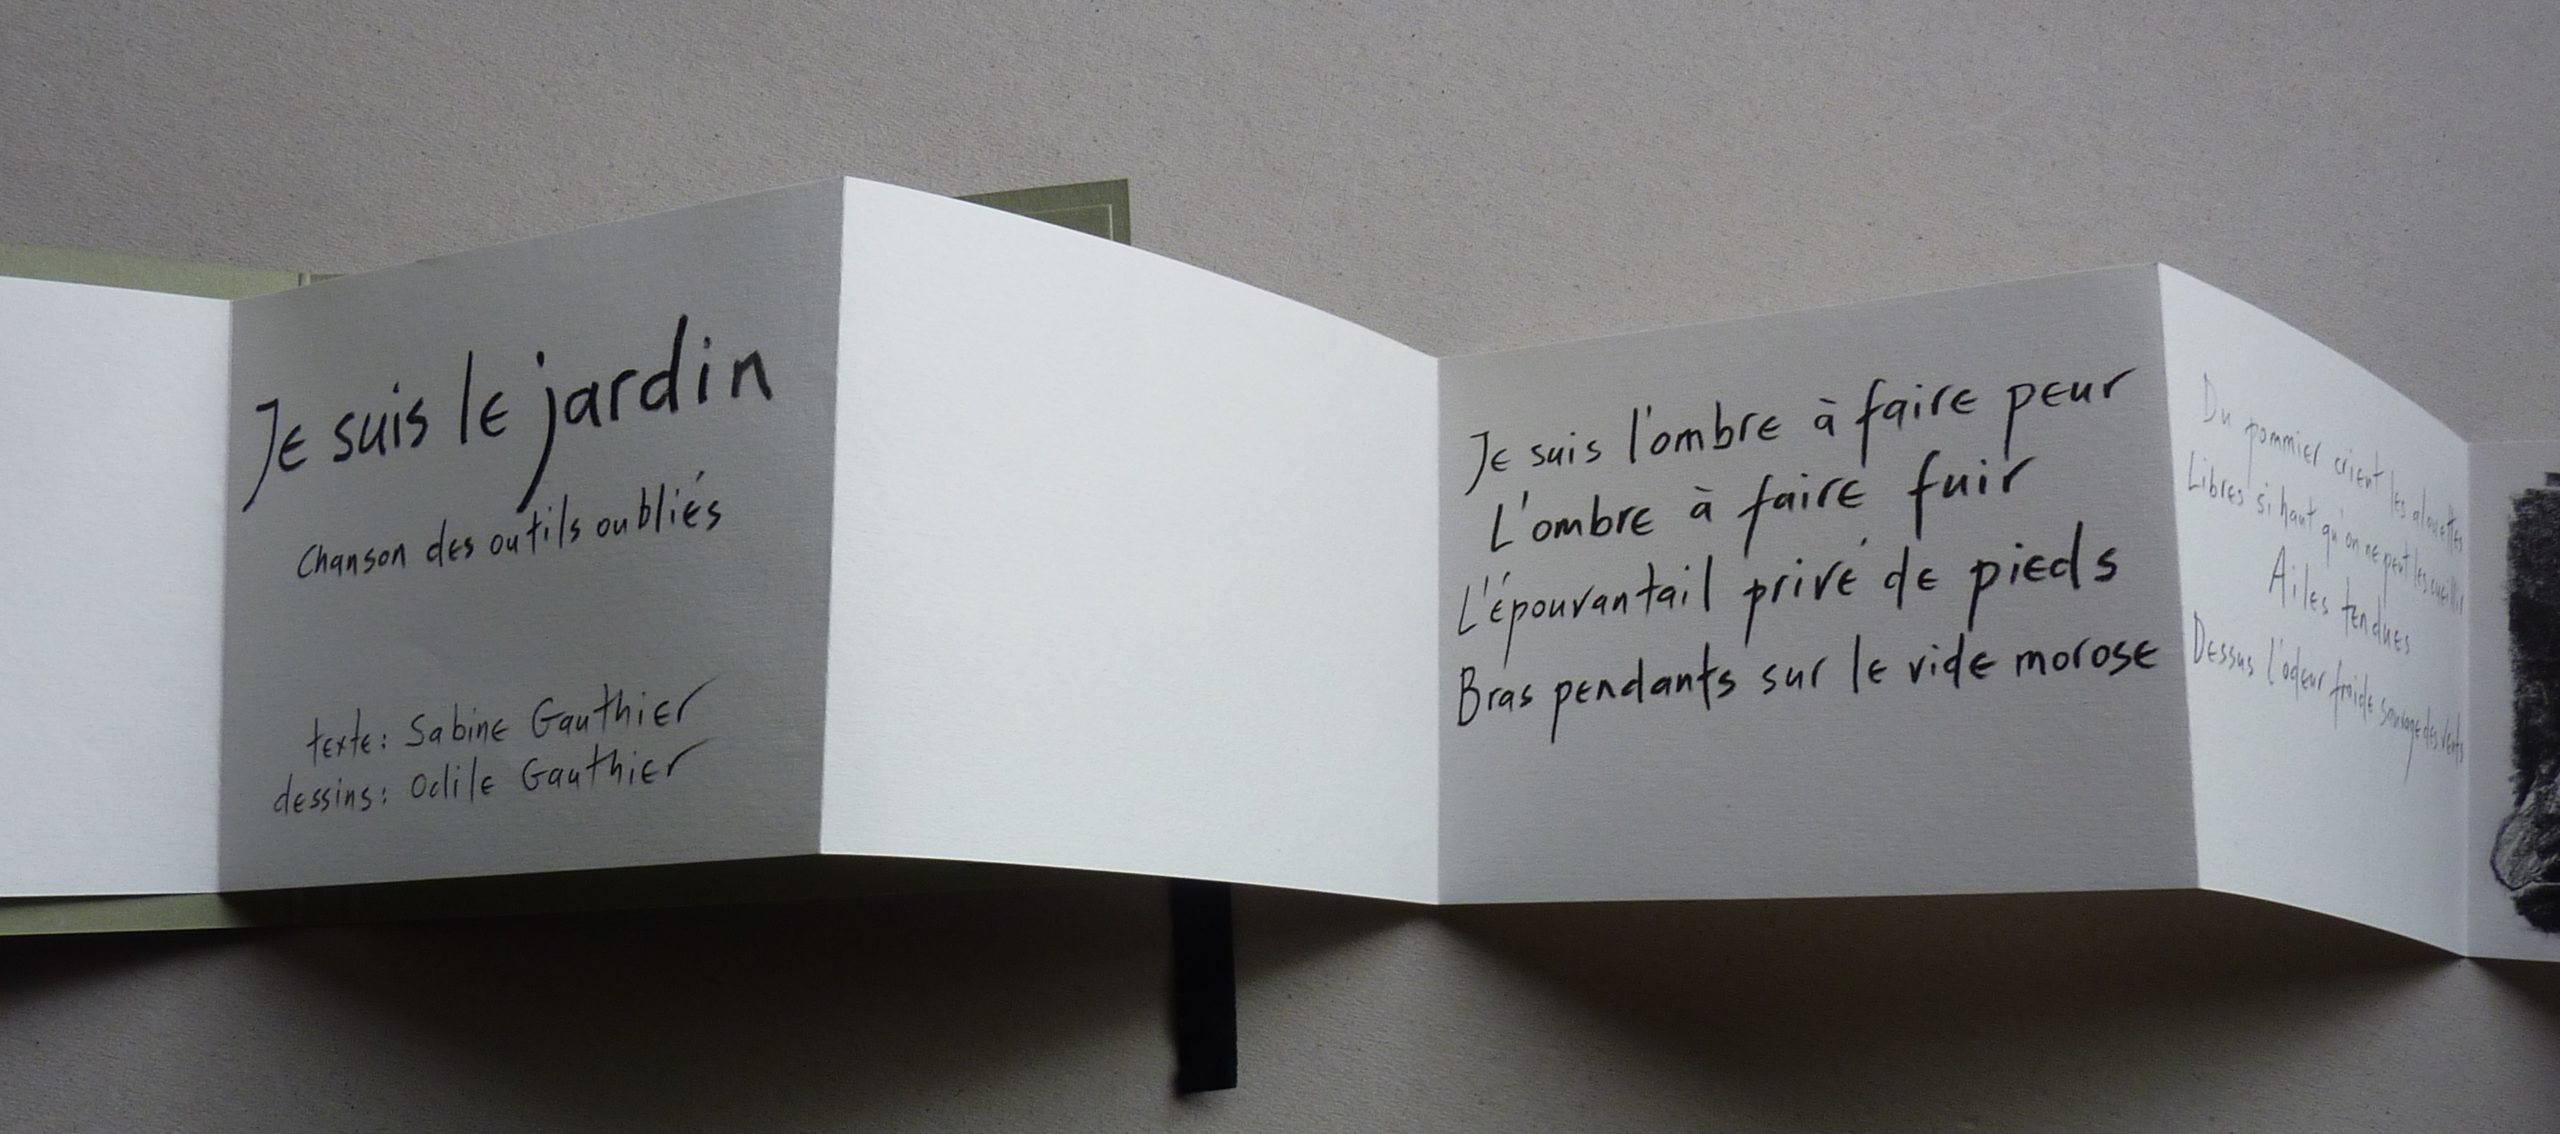 Je suis le jardin
Chanson des outils oubliés
texte: Sabine Gauthier
dessins: Odile Gauthier
Je suis l'ombre à faire peur
L'ombre à faire fuir
L'épouvantail privé de pieds
Bras pendants sur le vide morose
Du pommier crient les alouettes
Libres si haut qu'on ne peut les cueillir
Ailes tendues
Dessus l'odeur froide sauvage des vents